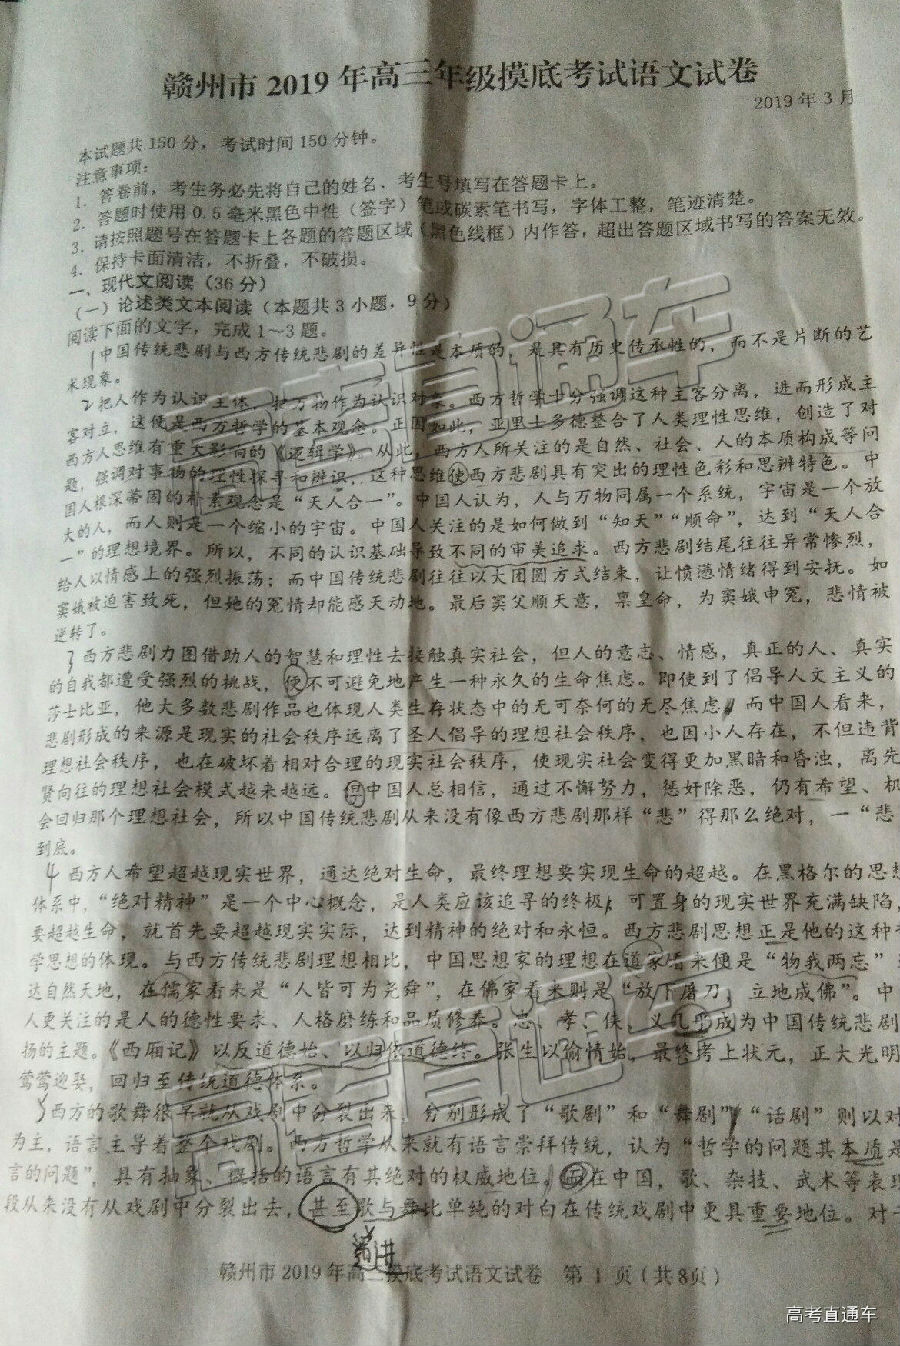 赣州市2019年高三年级摸底考试语文试卷
2019年3月
本试题共150分，考试时间150分钟。
注意事项：
1. 答卷前，考生务必先将自己的姓名、考生号填写在答题卡上。
2. 答题时使用0.5毫米黑色中性（签字）笔或碳素笔书写，字体工整，笔迹清楚。
3. 请按照题号在答题卡上各题的答题区域（黑色线框）内作答，超出答题区域书写的答案无效。
4. 保持卡面清洁，不折叠，不破损。
一、现代文阅读（36分）
（一）论述类文本阅读（本题共3小题，9分）
阅读下面的文字，完成1～3题。
1 中国传统悲剧与西方传统悲剧的差异性是本质的，是具有历史传承性的，而不是片断的艺
术现象。
2 把人作为认识主体，把万物作为认识对象。西方哲学十分强调这种主客分离，进而形成主
客对立，这便是西方哲学的基本观念。正因如此，亚里士多德整合了人类理性思维，创造了对
西方人思维有重大影响的《逻辑学》，从此，西方人所关注的是自然、社会、人的本质构成等问
题，强调对事物的理性探寻和辨识，这种思维使西方悲剧具有突出的理性色彩和思辨特色。中
国人根深蒂固的朴素观念是“天人合一”。中国人认为，人与万物同属一个系统，宇宙是一个放
大的人，而人则是一个缩小的宇宙。中国人关注的是如何做到“知天”“顺命”，达到“天人合
一”的理想境界。所以，不同的认识基础导致不同的审美追求。西方悲剧结尾往往异常惨烈，
给人以情感上的强烈振荡；而中国传统悲剧往往以大团圆方式结束，让愤懑情绪得到安抚。如
窦娥被迫害致死，但她的冤情却能感天动地。最后窦父顺天意，禀皇命，为窦娥申冤，悲情被
逆转了。
3 西方悲剧力图借助人的智慧和理性去接触真实社会，但人的意志、情感，真正的人、真实
的自我都遭受强烈的挑战，便不可避免地产生一种永久的生命焦虑。即使到了倡导人文主义的
莎士比亚，他大多数悲剧作品也体现人类生存状态中的无可奈何的无尽焦虑。而中国人看来，
悲剧形成的来源是现实的社会秩序远离了圣人倡导的理想社会秩序，也因小人存在，不但违背
理想社会秩序，也在破坏着相对合理的现实社会秩序，使现实社会变得更加黑暗和昏浊，离先
贤向往的理想社会模式越来越远。但中国人总相信，通过不懈努力，惩奸除恶，仍有希望、机
会回归那个理想社会，所以中国传统悲剧从来没有像西方悲剧那样“悲”得那么绝对，一“悲
到底。
4 西方人希望超越现实世界，通达绝对生命，最终理想要实现生命的超越。在黑格尔的思想
体系中，“绝对精神”是一个中心概念，是人类应该追寻的终极，可置身的现实世界充满缺陷，
要超越生命，就首先要超越现实实际，达到精神的绝对和永恒。西方悲剧思想正是他的这种
学思想的体现。与西方传统悲剧理想相比，中国思想家的理想在道家看来便是“物我两忘”
达自然天地，在儒家看来是“人皆可为尧舜”，在佛家看来则是“放下屠刀，立地成佛”。中
人更关注的是人的德性要求、人格磨练和品质修养。忠、孝、佚、义几乎成为中国传统悲剧
扬的主题。《西厢记》以反道德始、以归依道德终。张生以偷情始，最终考上状元，正大光明
莺莺迎娶，回归至传统道德体系。
5 西方的歌舞很早就从戏剧中分裂出来，分别形成了“歌剧”和“舞剧”，“话剧”则以对
为主，语言主导着整个戏剧。西方哲学从来就有语言崇拜传统，认为“哲学的问题其本质是
言的问题”，具有抽象、概括的语言有其绝对的权威地位。而在中国，歌、杂技、武术等表现
段从来没有从戏剧中分裂出去，甚至歌与舞比单纯的对白在传统戏剧中更具重要地位。对于
递进
赣州市2019年高三摸底考试语文试卷 第1页（共8页）
高考直通车
高考直通车
高考直通车